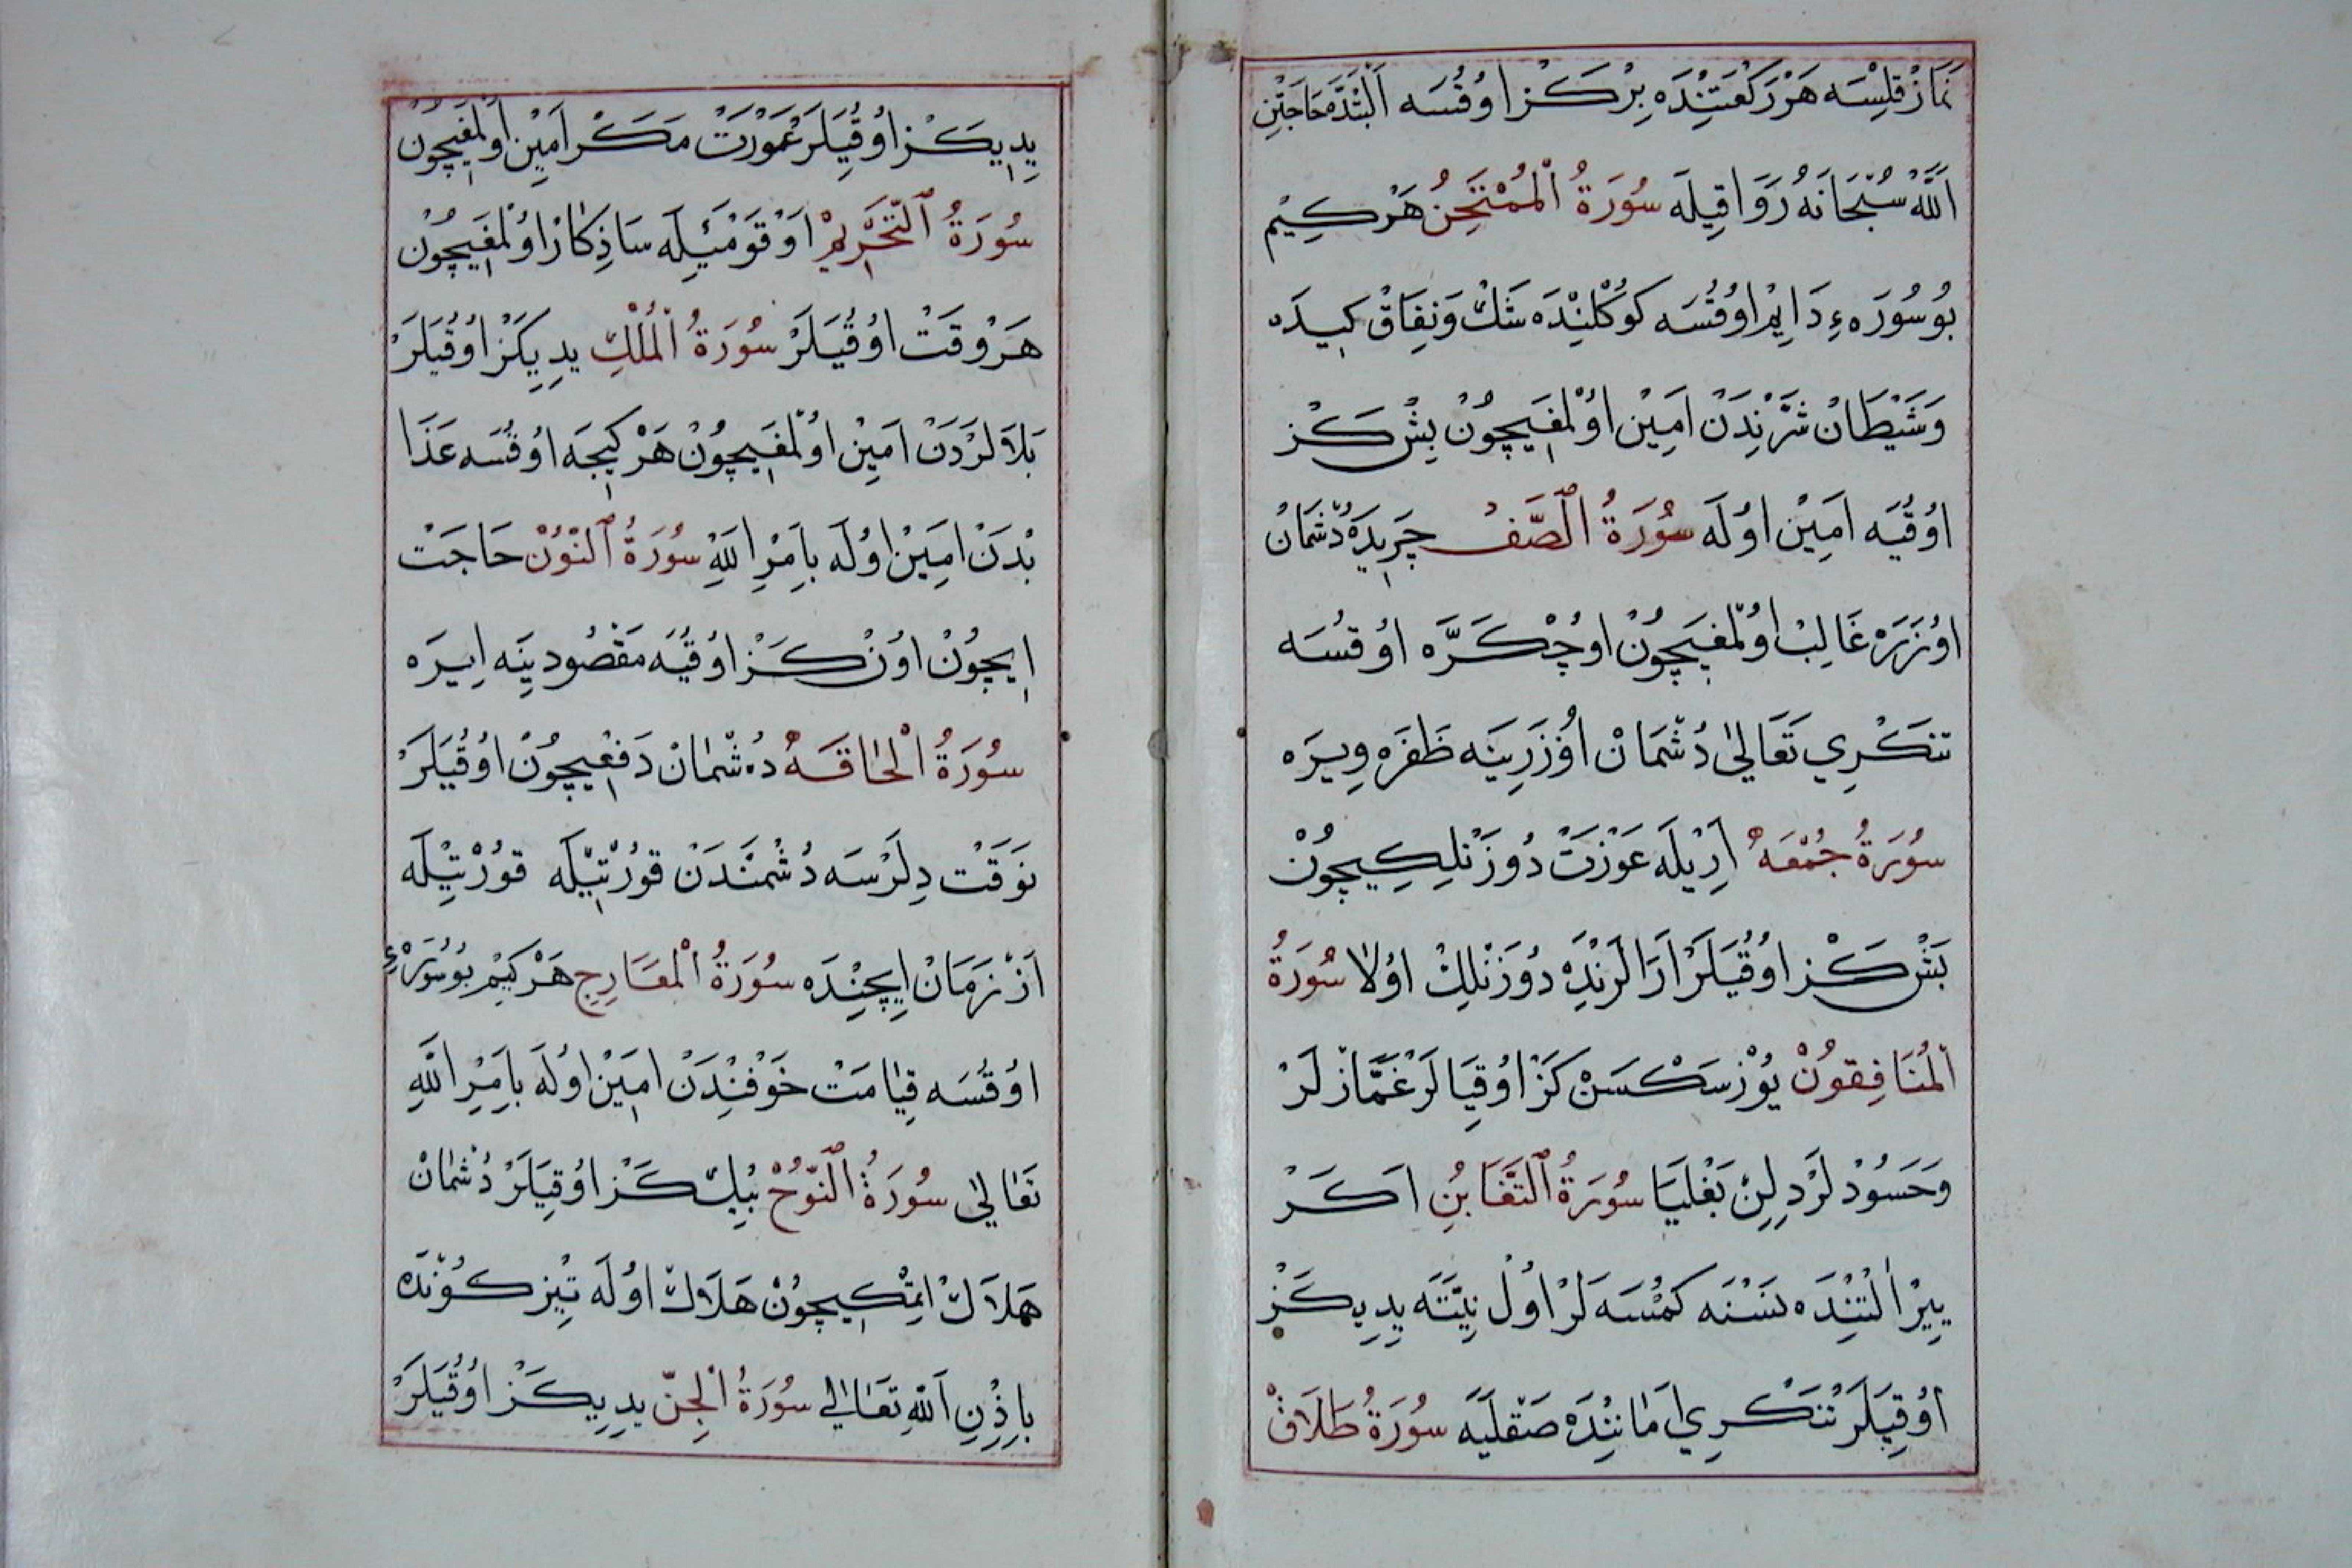 نَمَازْ قِلِسَه هَرْ رَكْعَتِنْدَه بِرْ كَزْ اوُقُسَه اَلْبَتَّدَه حَاجَتِنِ
اَللّٰهْ سُبْحَانَهُ رَوَا قِيلَه سُورَةُ الْمُمْتَحِنُ هَرْ كِيمْ
بُو سُورَهءِ دَايِمْ اوُقُسَه كوُكْلِنْدَه شَكْ وَنِفَاقْ كِيدَه
وَشَيْطَانْ شَرِّنْدَنْ اَمِينْ اوُلْمَغِيچُونْ بِشْ كَزْ
اوُقُيَه اَمِينْ اوُلَه سُورَةُ الصَّفْ چَرِيدَه دُشْمَانْ
اوُزَرَه غَالِبْ اوُلْمَغِيچُونْ اوُچْ كَرَّه اوُقُسَه
تنكْرِي تَعَالىٰ دُشْمَانْ اوُزَرِينَه ظَفَرَه وِيرَه
سُورَةُ جُمْعَه اَرِيلَه عَوْرَتْ دُوزَنْلِكِيچُونْ
بَشْ كَزْ اوُقُيَلَرْ اَرَالَرِنْدَه دُوزَنْلِكْ اوُلاَ سُورَةُ
الْمُنَافِقوُنْ يُوزْ سَكْسَنْ كَزْ اوُقِيَالَرْ غَمَّازْلَرْ
وَحَسُودْلَرْ دِلِنْ بَغْلَيَا سُورَةُ التَّغَابُنِ اَكَرْ
يِيرْ اَلْتِنْدَه نَسْنَه كَمْسَه لَرْ اوُلْ نِيَّتَه يِدِي كَزْ
اوُقِيَلَرْ تَنكْرِي اَمَانِنْدَه صَقْلَيَه سُورَةُ طَلَاقْ
يِدِي كَزْ اوُقِيَلَرْ عَوْرَتْ مَكْرِ اَمِينْ اوُلْمَغِيچُونْ
سُورَةُ التَّحْرِيمْ اَوْ قَوْمَيِلَه سَاذِكَارْ اوُلْمَغِيچُونْ
هَرْ وَقَتْ اوُقُيَلَرْ سُورَةُ الْمُلْكِ يِدِي كَزْ اوُقُيَلَرْ
بَلاَلَرْدَنْ اَمِينْ اوُلْمَغِيچُونْ هَرْ كِيجَه اوُقُسَه عَذَا
بْدَنْ اَمِينْ اوُلَه بِاَمْرِ اللّٰهِ سُورَةُ النُّونْ حَاجَتْ
اِيچُونْ اوُنْ كَزْ اوُقُيَه مَقْصُودِينَه اِيرَه
سُورَةُ الْحَاقَه دُشْمَانْ دَفْعِيچُونْ اوُقُيَلَرْ
نَوَقَتْ دِلَرْسَه دُشْمَنْدَنْ قوُرْتِيلَه قوُرْتِيلَه
اَزْ زَمَانْ اِيچِنْدَه سُورَةُ الْمَعَارِجِ هَرْ كِيمْ بوُ سُورَهءِ
اوُقُسَه قِيَامَتْ خَوْفِنْدَنْ اَمِينْ اوُلَه بِاَمْرِ اللّٰهِ
تَعَالىٰ سُورَةُ النُّوحْ بِيكْ كَزْ اوُقِيَلَرْ دُشْمَانْ
هَلاَكْ اِتْمَكِيچُونْ هَلاَكْ اوُلَه تِيزْ كوُنْدَه
بِاِذْنِ اللّٰهِ تَعَالىٰ سُورَةُ الْجِنّ يِدِي كَزْ اوُقُيَلَرْ